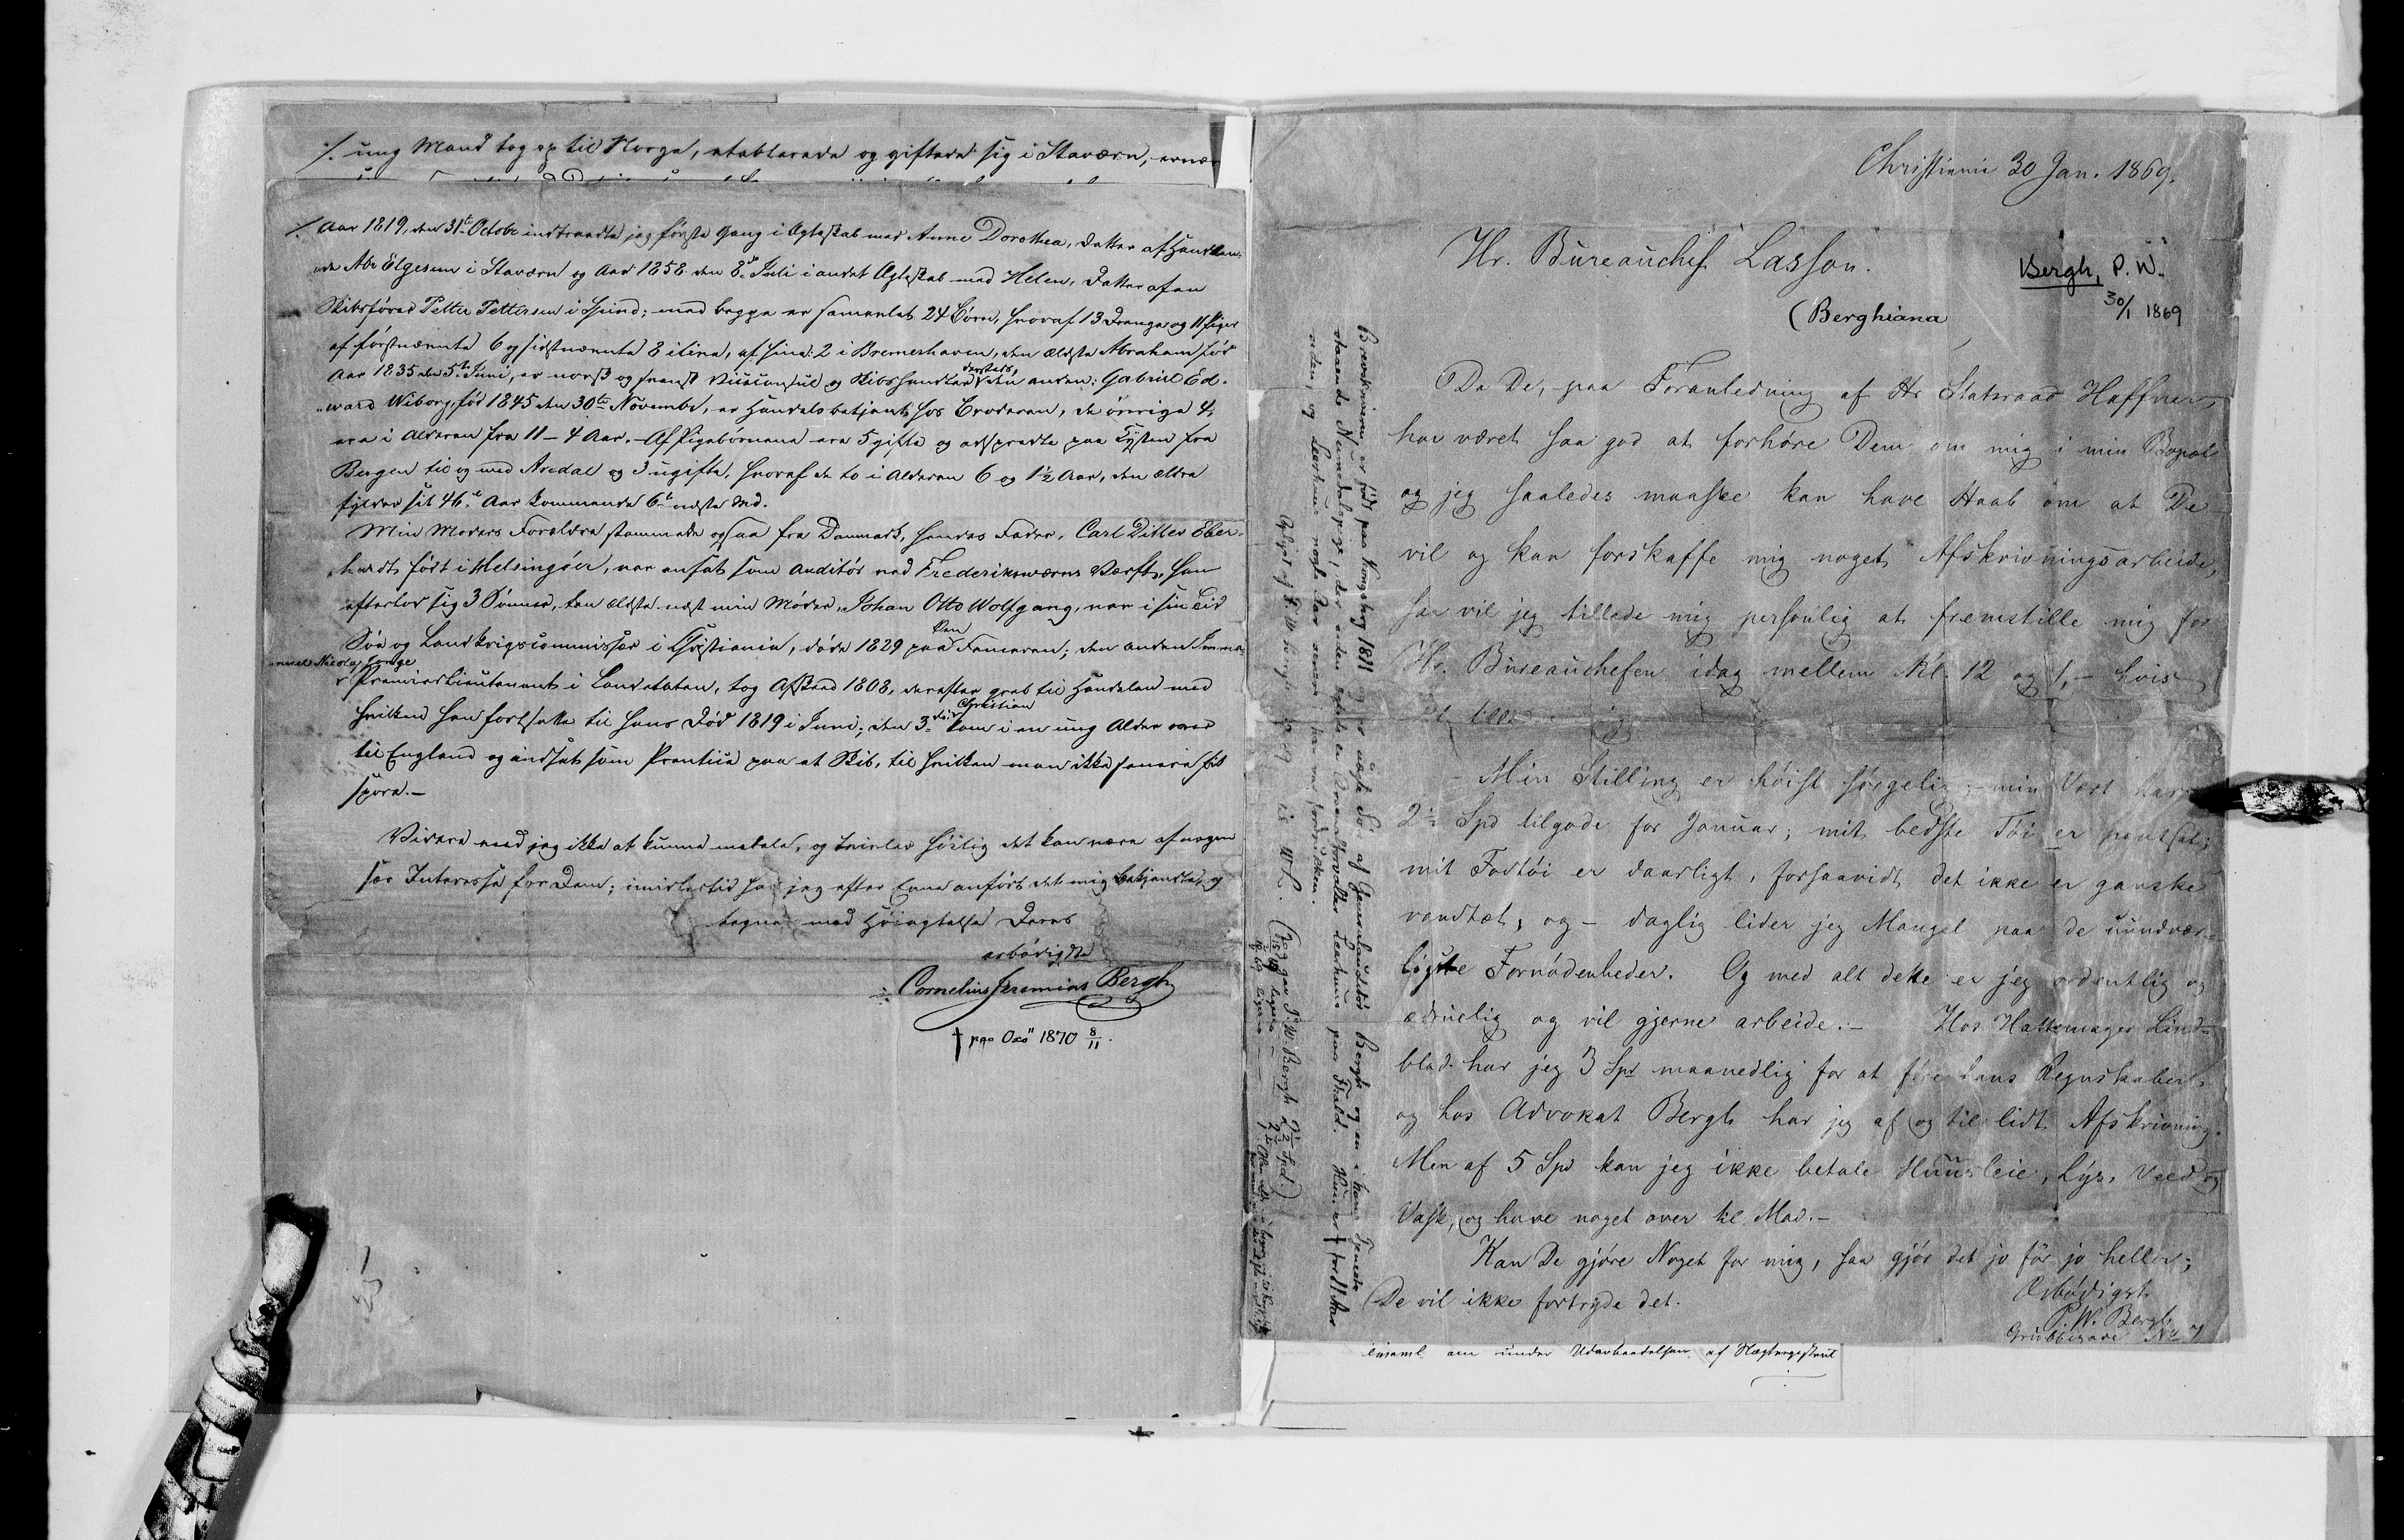 ./. ung Mand tog op til Norge, etablerede og giftede sig i Stavern,
./. Aar 1819, den 31te Octobr indtraadte jeg første Gang i Ægteskab med Anne Dorothea, Datter af Handlen-
de Abr Elgesem i Stavern og Aar 1858 den 8de Juli i andet Ægteskab med Helen, Datter af en
Skibsfører Petter Pettersen i Spind; med begge er samenlat 24 Børn, hvoraf 13 Drenge og 11 Piger
af førstnævnte 6 og sidstnævnte 8 ilive, af hine: 2 i Bremerhaven, den ældste Abraham fød
Aar 1835 den 5te Juni, er norsk og svensk Viceconsul og Skibshandler dersteds, den anden: Gabriel Ed-
ward Wiborg, fød 1845 den 30te Novembr, er Handelsbetjent hos Broderen, de øvrige 4,
ere i Alderen fra 11 – 4 Aar. – Af Pigebørnene ere 5 gifte og adspredte paa Kysten fra
Bergen til og med Aredal og 3 ugifte, hvoraf de to i Alderen 6 og 1½ Aar, den ældre
fylder sit 46de Aar kommende 6te næste Md.
Min Moders Forældre stammede ogsaa fra Danmark, hendes Fader, Carl Ditlev Eber-
hardt født i Helsingøer, var ansat som Auditør ved Frederiksværns Værft, han
efterlod sig 3 Sønner, den ældste næst min Moder, Johan Otto Wolfgang, var i sin Tid
Søe og Landkrigscommissær i Christiania, døde 1829 paa Femøren; den anden Imma-
nuel Nicolay Longe
Premierlieutenant i Landetaten, tog Afsked 1808, derefter greb til Handelen med
hvilken han fortsatte til hans Død 1819 i Juni; den 3die Christian kom i en ung Alder over
til England og indsat som Prentice paa et Skib, til hvilken man ikke senere fik
spore. –
Videre veed jeg ikke at kunne meddele, og tvivler høilig det kan være af nogen
sær Interesse for Dem; imidlertid har jeg efter Evne anført det mig bekjendte, og
tegner med Høiagtelse Deres
ærbødigste
Cornelius Jeremias Bergh
† paa Oxö 1870 8/11.
Christiania 30 Jan. 1869.
Hr. Bureauchef Lasson.
Bergh, P. W.
30/1 1869
(Berghiana
Da De, paa Foranledning af Hr Statsraad Haffner,
har været saa god at forhøre Dem om mig i min Bopæl
og jeg saaledes maaske kan have Haab om at De
vil og kan forskaffe mig noget Afskrivningsarbeide,
saa vil jeg tillade mig personlig at fremstille mig for
Hr. Bureauchefen idag mellem Kl. 12 og 1, – hvis
– Min Stilling er høist sørgelig; – min Vært har
2½ Spd tilgode for Januar; mit bedste Tøi er pantsat;
mit Fodtøi er daarligt, forsaavidt det ikke er ganske
vandtæt, og – daglig lider jeg Mangel paa de uundvær-
ligste Fornødenheder. Og med alt dette er jeg ordentlig og
ædruelig og vil gjerne arbeide. – Hos Hattemager Lind-
blad har jeg 3 Spd maanedlig for at føre hans Regnskaber,
og hos Advokat Bergh har jeg af og til lidt Afskrivning.
Men af 5 Spd kan jeg ikke betale Huusleie, Lys, Veed og
Vask, og have noget over til Mad. –
Kan De gjøre Noget for mig, saa gjør det jo før jo heller;
De vil ikke fortryde det.
Ærbødigst
P. W. Bergh
Grubbegade No 7
Brevskriveren er født paa Kongsberg 1811 og er næste Søn af Generalauditør Bergh og en i hans Tjeneste
staaende Numedalspige, der siden ægtede en Arrestforvalter Leerhuus paa Thrld. Hun er † for 11 Aar
siden, og Leerhuus nogle Aar senere har
(Jeg gav P. W. Bergh 2½ Spd.)
under Udarbeidelsen af Slægtregistret